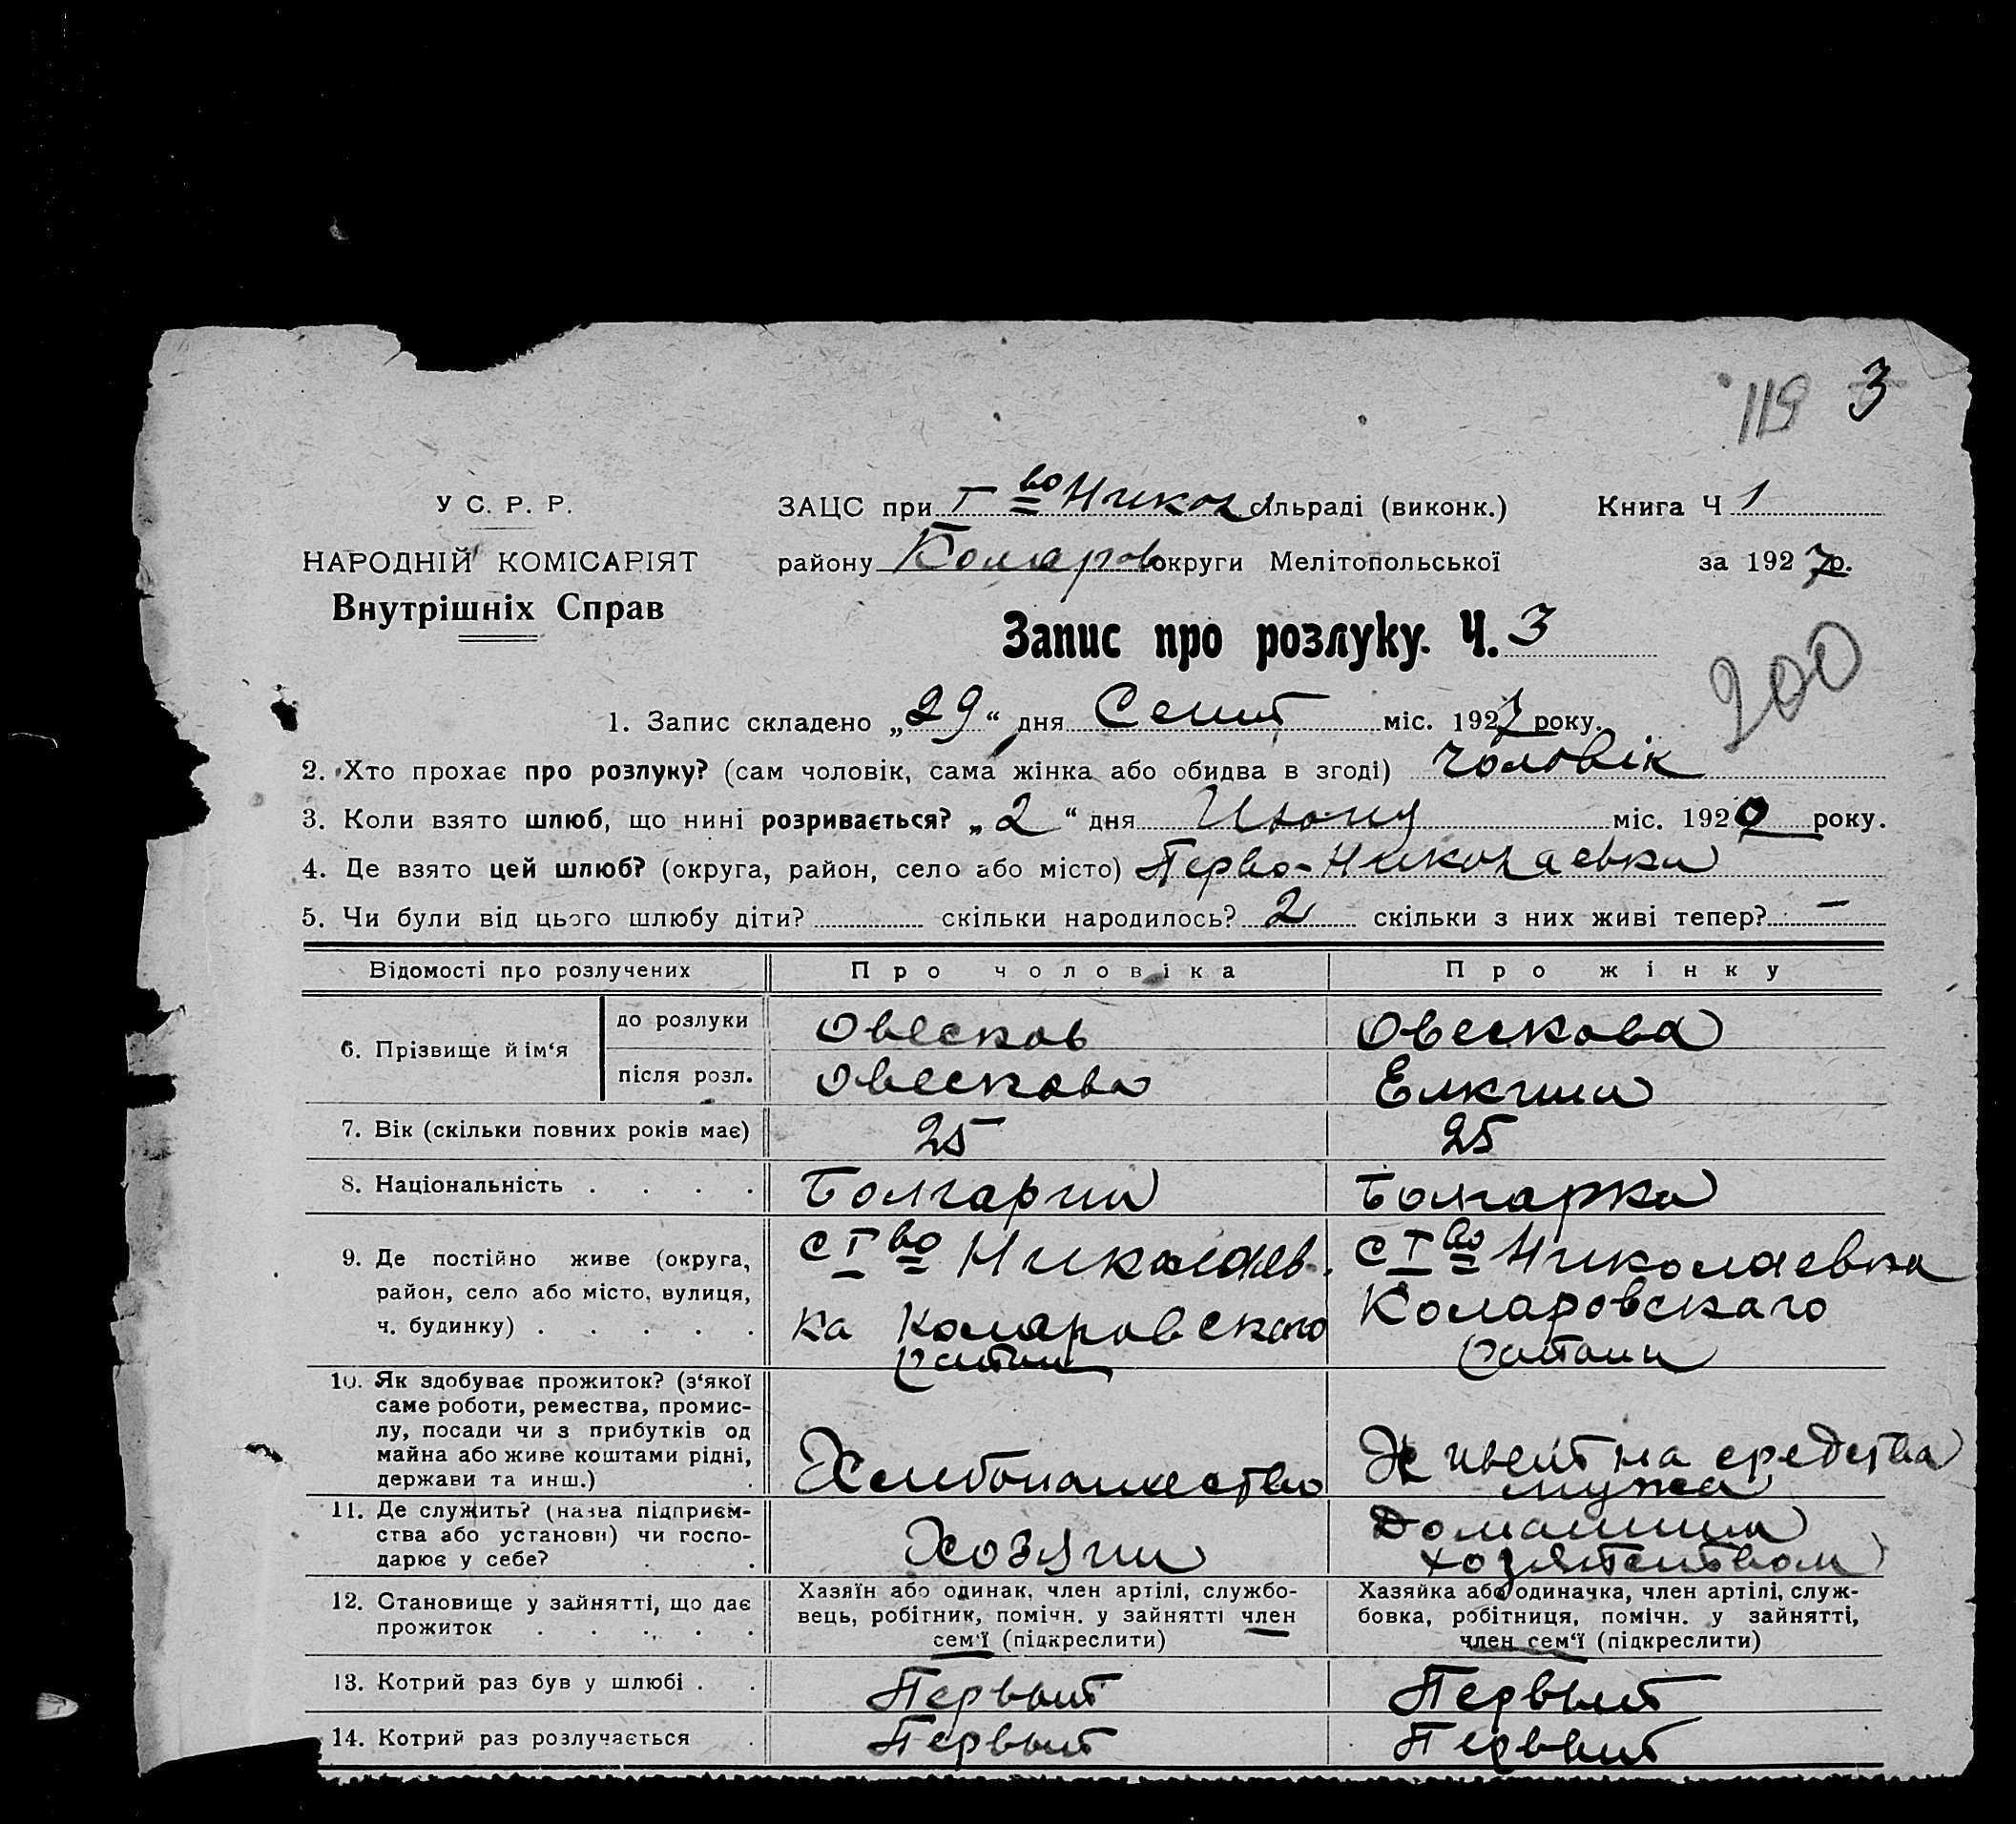 119 3
У С. Р. Р.
НАРОДНІЙ КОМІСАРІЯТ
Внутрішніх Справ
ЗАЦС при I во Никол сільраді (виконк.) Книга Ч 1
району Коларов округи Мелітопольської за 1927 р.
Запис про розлуку. Ч. 3
200
1. Запис складено „29“ дня Сент міс. 1927 року.
2. Хто прохає про розлуку? (сам чоловік, сама жінка або обидва в згоді) чоловік
3. Коли взято шлюб, що нині розривається? „2“ дня міс. 1920 року.
4. Де взято цей шлюб? (округа, район, село або місто) Перво-Николаевка
5. Чи були від цього шлюбу діти? скільки народилось? 2 скільки з них живі тепер? —
Відомості про розлучених Про чоловіка Про жінку
6. Прізвище й ім'я до розлуки Овесков Овескова
після розл. Овескова Елкина
7. Вік (скільки повних років має) 25 25
8. Національність . . . . Болгарин Болгарка
9. Де постійно живе (округа, район, село або місто, вулиця, ч. будинку) . . . . .
с I во Николаев-
ка Коларовского
с I во Николаевка
Коларовскаго
10. Як здобуває прожиток? (з'якої
саме роботи, ремества, промис-
лу, посади чи з прибутків од
майна або живе коштами рідні,
держави та инш.) .
Хлебопашество
Живет на средства
мужа
11. Де служить? (назва підприєм-
ства або установи) чи госпо-
дарює у себе? . .
Хозяин
12. Становище у зайнятті, що дає
прожиток . . . . .
Хазяїн або одинак, член артілі, службо-
вець, робітник, помічн. у зайнятті член
сем'ї (підкреслити)
Хазяйка або одиначка, член артілі, служ-
бовка, робітниця, помічн. у зайнятті,
член сем'ї (підкреслити)
13. Котрий раз був у шлюбі . . Первый Первый
14. Котрий раз розлучається . Первый Первый